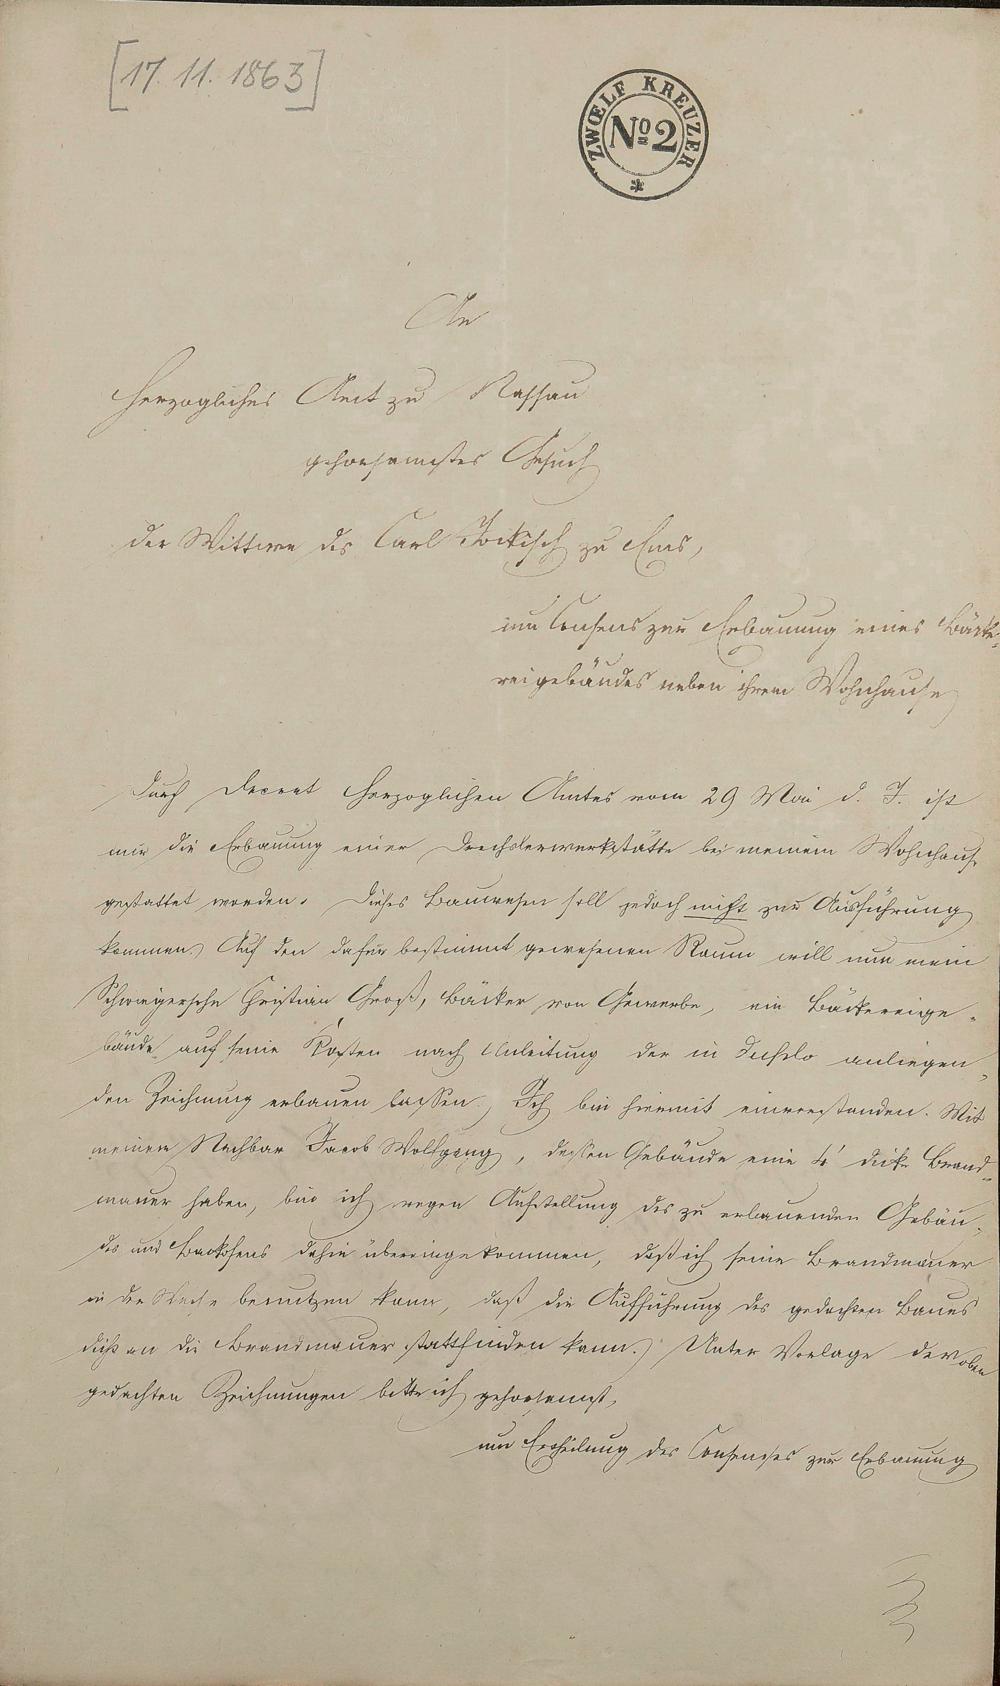 [17. 11. 1863]
ZWŒLF KREUZER
No 2
An
Herzogliches Amt zu Nassau
gehorsamstes Gesuch
der Wittwe des Carl Jockisch zu Ems,
um Consens zur Erbauung eines Bäcke-
reigebäudes neben ihrem Wohnhause
Durch Decret Herzoglichen Amtes vom 29 Mai d. J. ist
mir die Erbauung einer Drechslerwerkstätte bei meinem Wohnhause
gestattet worden. Dieses Bauwesen soll jedoch nicht zur Ausführung
kommen. Auf den dafür bestimmt gewesenen Raum will nun mein
Schwiegersohn Christian Groß, Bäcker von Gewerbe, ein Bäckereige-
bäude auf seine Kosten nach Anleitung der in Duplo anliegen-
den Zeichnung erbauen lassen. Ich bin hiermit einverstanden. Mit
meinem Nachbar Jacob Wolfgang, dessen Gebäude eine 4' dicke Brand-
mauer haben, bin ich wegen Aufstellung des zu erbauenden Gebäu-
des und Backofens dahin übereingekommen, daß ich seine Brandmauer
in der Weise benutzen kann, daß die Aufführung des gedachten Baues
dicht an die Brandmauer stattfinden kann. Unter Vorlage der oben
gedachten Zeichnungen bitte ich gehorsamst,
um Ertheilung des Consenses zur Erbauung